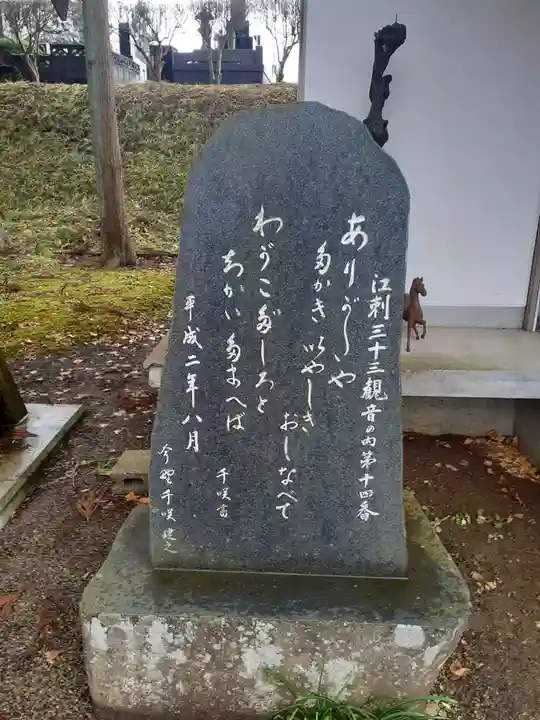 江刺三十三観音の内第十四番
ありがしや
多かきいやしき
おしなべて
わがこがしろと
ちかい多まへば
千咲書
平成二年八月
今野千咲建之